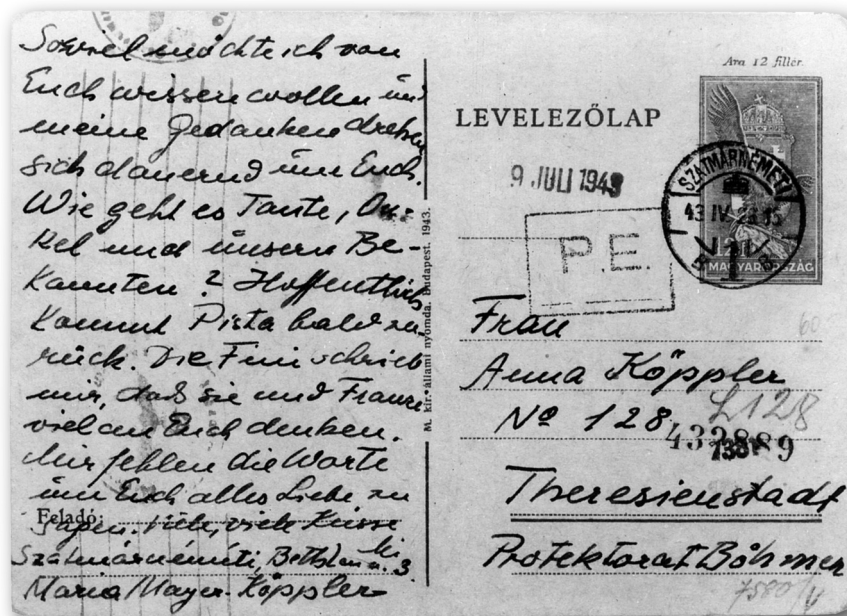 Soviel möchte ich von
Euch wissen wollen und
meine Gedanken drehen
sich dauernd um Euch.
Wie geht es Tante, On-
kel und unsern Be-
kannten? Hoffentlich
kommt Pista bald zu-
rück. Die Fini schrieb
mir, daß sie und Franzi
viel an Euch denken.
Mir fehlen die Worte
um Euch alles Liebe zu
sagen. Viele, viele Küsse
Feladó:
Szatmárnémeti, Bethlen u. 3.
Maria Mayer-Köppler
M. kir. állami nyomda. Budapest. 1943.
Ára 12 fillér.
LEVELEZŐLAP
9. JULI 1943
SZATMÁRNÉMETI
43 IV 28 15
12
MAGYARORSZÁG
P.E.
60
Frau
Anna Köppler
No 128
L128
432889
Theresienstadt
Protektorat Böhmen